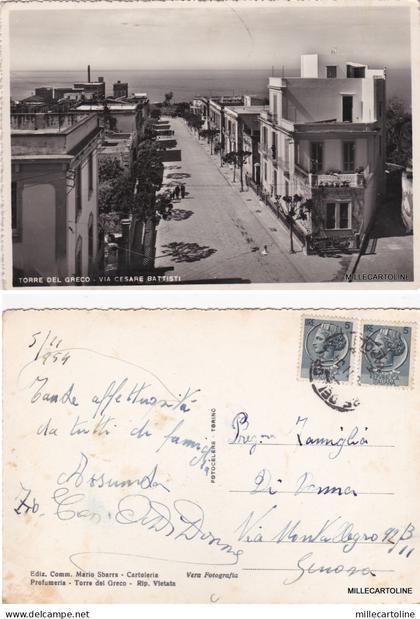 TORRE DEL GRECO - VIA CESARE BATTISTI
MILLECARTOLINE
5/11
1954
Tante affettuosità
da tutti di famiglia
Assunta
5
5
FOTOCELERE - TORINO
Preg. Famiglia
Di Donna
Via Montallegro
Genova
Ediz. Comm. Mario Sbarra - Cartoleria
Profumeria - Torre del Greco - Rip. Vietata
Vera Fotografia
MILLECARTOLINE
http://www.millecartoline.net